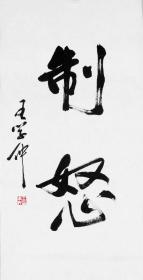 制怒
王学仲